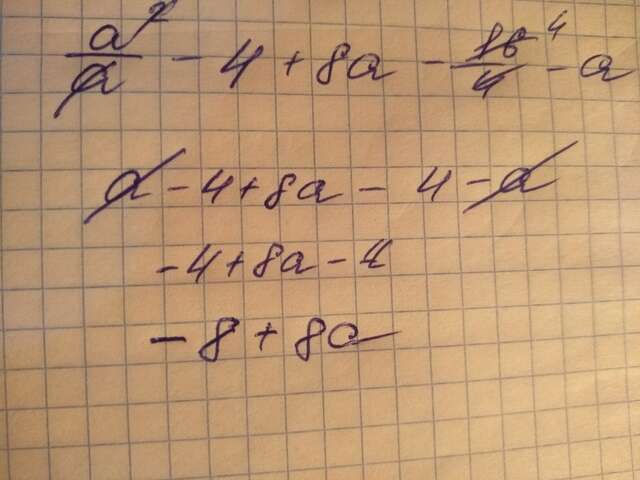 a²/a - 4 + 8a - 16⁴/4 - a
a - 4 + 8a - 4 - a
-4 + 8a - 4
- 8 + 8a